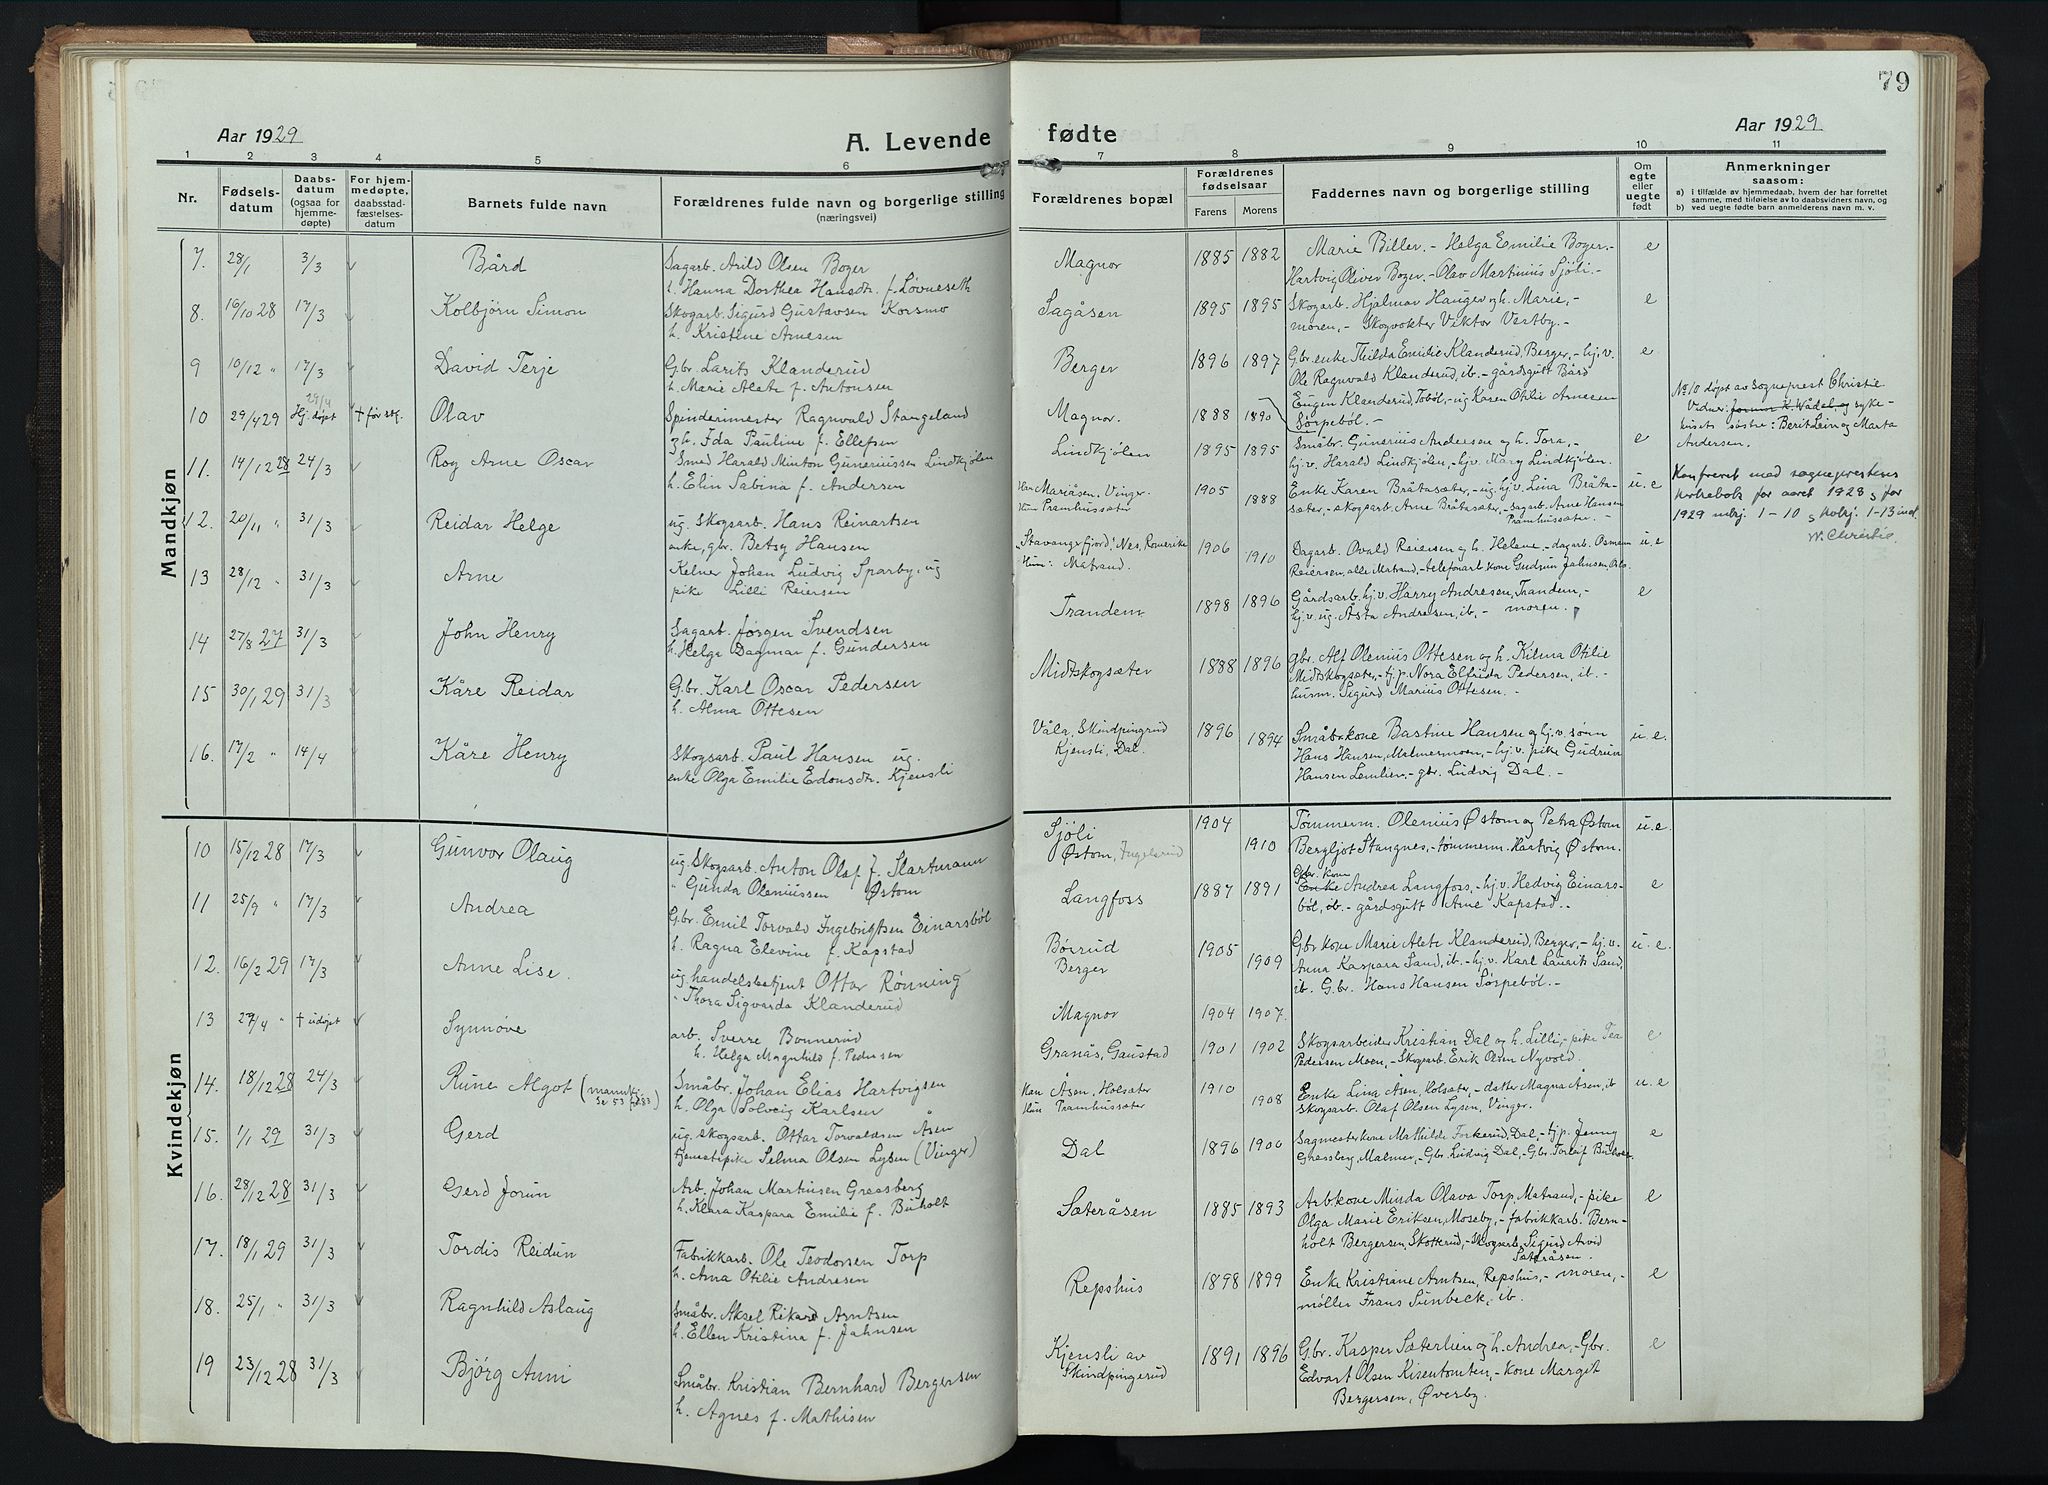 79
Aar 1929
A. Levende fødte
Aar 1929
1 2 3 4 5 6 7 8 9 10 11
Nr.
Fødsels-
datum
Daabs-
datum
(ogsaa for
hjemme-
døpte)
For hjem-
medøpte,
daabsstad-
fæstelses-
datum
Barnets fulde navn
Forældrenes fulde navn og borgerlige stilling
(næringsvei)
Forældrenes bopæl
Forældrenes
fødselsaar
Farens Morens
Faddernes navn og borgerlige stilling
Om
egte
eller
uegte
født
Anmerkninger
saasom:
a) i tilfælde av hjemmedaab, hvem der har forrettet
samme, med tilføielse av to daabsvidners navn, og
b) ved uegte fødte barn anmelderens navn m. v.
Mandkjøn
7. 28/1 3/3 Bård
Sagarb. Arild Olsen Boger
h. Hanna Dorthea Hansdr. f. Løvneseth
Magnor 1885 1882
Marie Biller. - Helga Emilie Boger. -
Hartvig Oliver Boger. - Olav Martinius Sjöli. -
e
8. 16/10 28 17/3 Kolbjörn Simon
Skogarb. Sigurd Gustavsen Korsmo
h. Kristine Arnesen
Sagåsen 1895 1895
Skogarb. Hjalmar Hauger og h. Marie, -
moren, - Skogvokter Viktor Vestby. -
e
9 10/12 " 17/3 David Terje
Gbr. Larits Klanderud
h. Marie Alete f. Antonsen
Berger 1896 1897
Gbr. enke Thilda Emilie Klanderud, Berger, - hj. v.
Ole Ragnvald Klanderud, ib. - gårdsgutt Bård
Eugen Klanderud, Tobøl, - ug Karen Otilie Arnesen
Sørpebøl. -
e
10 29/4 29 29/4 Hj. døpt † før stf. Olav
Spinderimester Ragnvald Stangeland
og h. Ida Pauline f. Ellefsen
Magnor. 1888 1890
No 10 døpt av sogneprest Christie
Vidner: jormor K. Wådel, og syke-
husets søstre: Berit Lein og Marta
Andersen.
11. 14/12 28 24/3 Roy Arne Oscar
Smed Harald Minton Guneriussen Lindkjølen
h. Elin Sabina f. Andersen
Lindkjölen 1895 1895
Småbr. Gunerius Andersen og h. Tora, -
hj. v. Harald Lindkjølen, - hj. v. Mary Lindkjølen.
e
12. 20/11 " 31/3 Reidar Helge
ug. Skogsarb. Hans Reinartsen
enke, gbr. Betsy Hansen
Han Mariåsen, Vinger.
Hun Pramhussæter
1905 1888
Enke Karen Bråtasæter, - ug. hj. v. Lina Bråta-
sæter, - skogsarb. Arne Bråtasæter, - sagarb. Arne Hansen
Pramhussæter. -
u. e
Konfreret med sogneprestens
notebok for aaret 1928 &amp; for
1929 mkj. 1-10 &amp; kvkj. 1-13 incl.
W. Christie.
13 28/12 " 31/3 Arne
Kelner Johan Ludvig Sparby, ug
pike Lilli Reiersen
"Stavangerfjord", Nes, Romerike
Hun: Matrand.
1906 1910
Dagarb. Ovald Reiersen og h. Helene, - dagarb. Osmem
Reiersen, alle Matrand, - telefonart kone Gudrun Jahnsen, Oslo
u. e
14 27/8 27 31/3 John Henry
Sagarb. Jørgen Svendsen
h. Helga Dagmar f. Gundersen
Trandem 1898 1896
Gårdsarb. hj. v. Harry Andresen, Trandem, -
hj. v. ug. Åsta Andresen, ib, - moren.
e
15 30/1 29 31/3 Kåre Reidar
Gbr. Karl Oscar Pedersen
h. Alma Ottesen
Midtskogsæter 1888 1896
gbr. Alf Olenius Ottesen og h. Kilma Otilie
Midtskogsæter, - tj. p. Nora Elfrida Pedersen, ib. -
husm. Sigurd Marius Ottesen. -
16. 17/2 " 14/4 Kåre Henry
Skogsarb. Paul Hansen ug.
enke Olga Emilie Edonsdr. Kjensli
Våla, Skindpingrud
Kjensli, Dal.
1896 1894
Småbr.kone Bastine Hansen og hj. v. sønn
Hans Hansen, Malmermoen, - hj. v. pike Gudrun
Hansen Lemlien, - gbr. Ludvig Dal. -
u. e.
Kvindekjøn
10 15/12 28 17/3 Gunvor Olaug
ug. Skogsarb. Anton Olaf f. Slartmann
" Gunda Oleniussen Østom
Sjöli
Østom, Ingelsrud
1904 1910
Tømmerm. Olenius Østom og Petra Østom
Bergljot Stangnes, - tømmerm. Hartvig Østom.
u. e.
11 25/9 " 17/3 Andrea
Gbr. Emil Torvald Ingebrigtsen Einarsbøl
h. Ragna Elevine f. Kapstad
Langfoss 1887 1891
Gbr. kone
Enke Andrea Langfoss, - hj. v. Hedvig Einars-
bøl, ib. - gårdsgutt Arne Kapstad. -
e
12. 16/2 29 17/3 Anne Lise.
ug. handelsbetjent Ottar Rönning
" Thora Sigvarda Klanderud
Börrud
Berger
1905 1909
Gbr kone Marie Alete Klanderud, Berger, - hj. v.
Anna Kaspara Sand, ib. - hj. v. Karl Laurits Sand,
ib. Gbr. Hans Hansen Sørpebøl. -
u. e.
13 27/4 " † udøpt Synnöve
arb. Sverre Bonnerud
h. Helga Magnhild f. Pedersen
Magnor 1904 1907.
14. 18/12 28 24/3 Rune Algot (mannkj. Se 53 f 283)
Småbr. Johan Elias Hartvigsen
h. Olga Solveig Karlsen
Granås, Gaustad 1901 1902
Skogsarbeider Kristian Dal og h. Lilli, - pike Tea
Pedersen Moen, - Skogsarb. Erik Olsen Nyvold.
e
15. 1/1 29 31/3 Gerd
ug. Skogsarb. Ottar Torvaldsen Åsen
tjenestepike Selma Olsen Lysen (Vinger)
Han Åsen, Holsæter
Hun Pramhussæter
1910 1908
Enke Lina Åsen, Holsæter, - datter Magna Åsen, ib
Skogsarb. Olaf Olsen Lysen, Vinger.
u. e
16. 28/12 28 31/3 Gerd Jorun
Arb. Johan Martinsen Greasberg
h. Klara Kaspara Emilie f. Buholt
Dal 1896 1900
Sagmester kone Mathilde Forkerud, Dal, - tj. p. Jenny
Greasberg, Malmer, - Gbr. Ludvig Dal, - Gbr. Torleif Buholt.
e
17. 18/1 29 31/3 Tordis Reidun
Fabrikkarb. Ole Teodorsen Torp
h. Anna Otilie Andresen
Sæteråsen 1885 1893
Arb.kone Minda Olava Torp, Matrand, - pike
Olga Marie Eriksen, Moseby, - fabrikkarb. Bern-
holt Bergersen, Skotterud, - Skogsarb. Sigurd Arvid
Sæteråsen.
e
18. 25/1 " 31/3 Ragnhild Aslaug
Småbr. Aksel Rikard Arntsen
h. Ellen Kristina f. Jahnsen
Repshus 1898 1899
Enke Kristiane Arntsen, Repshus, - moren, -
møller Frans Sunbeck, ib.
e
19 23/12 28 31/3 Bjørg Anni
Småbr. Kristian Bernhard Bergersen
h. Agnes f. Mathisen
Kjensli av
Skindpingerud
1891 1896
Gbr. Kasper Sæterlien og h. Andrea, - Gbr.
Edvart Olsen Kisentomten, - kone Margit
Bergersen, Øverby.
e